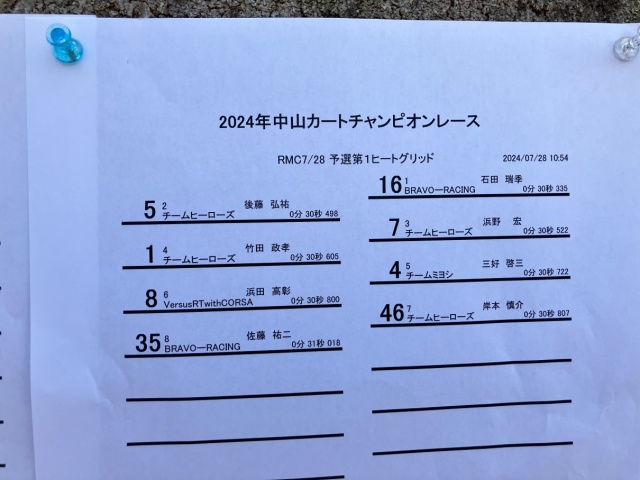 2024年中山カートチャンピオンレース
RMC7/28 予選第1ヒートグリッド
2024/07/28 10:54
16 1 石田 瑞季
BRAVOーRACING 0分 30秒 335
5 2 後藤 弘祐
チームヒーローズ 0分 30秒 498
7 3 浜野 宏
チームヒーローズ 0分 30秒 522
1 4 竹田 政孝
チームヒーローズ 0分 30秒 605
4 5 三好 啓三
チームミヨシ 0分 30秒 722
8 6 浜田 高彰
VersusRTwithCORSA 0分 30秒 800
46 7 岸本 慎介
チームヒーローズ 0分 30秒 807
35 8 佐藤 祐二
BRAVOーRACING 0分 31秒 018